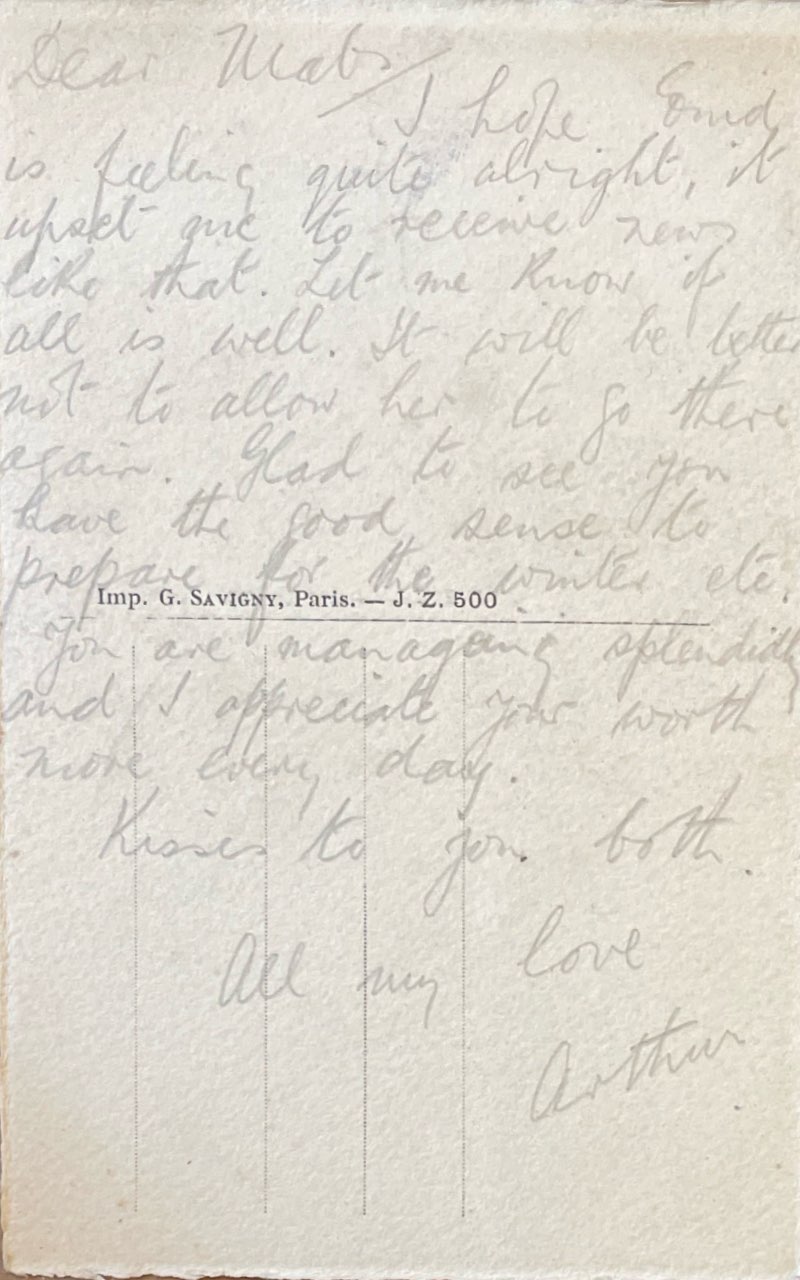 Dear Mabs/
I hope Enid
is feeling quite alright, it
upset me to receive news
like that. Let me know if
all is well. It will be better
not to allow her to go there
again. Glad to see you
have the good sense to
prepare for the winter etc.
Imp. G. SAVIGNY, Paris. — J. Z. 500
You are managing splendidly
and I appreciate your worth
more every day.
Kisses to you both.
All my love
Arthur